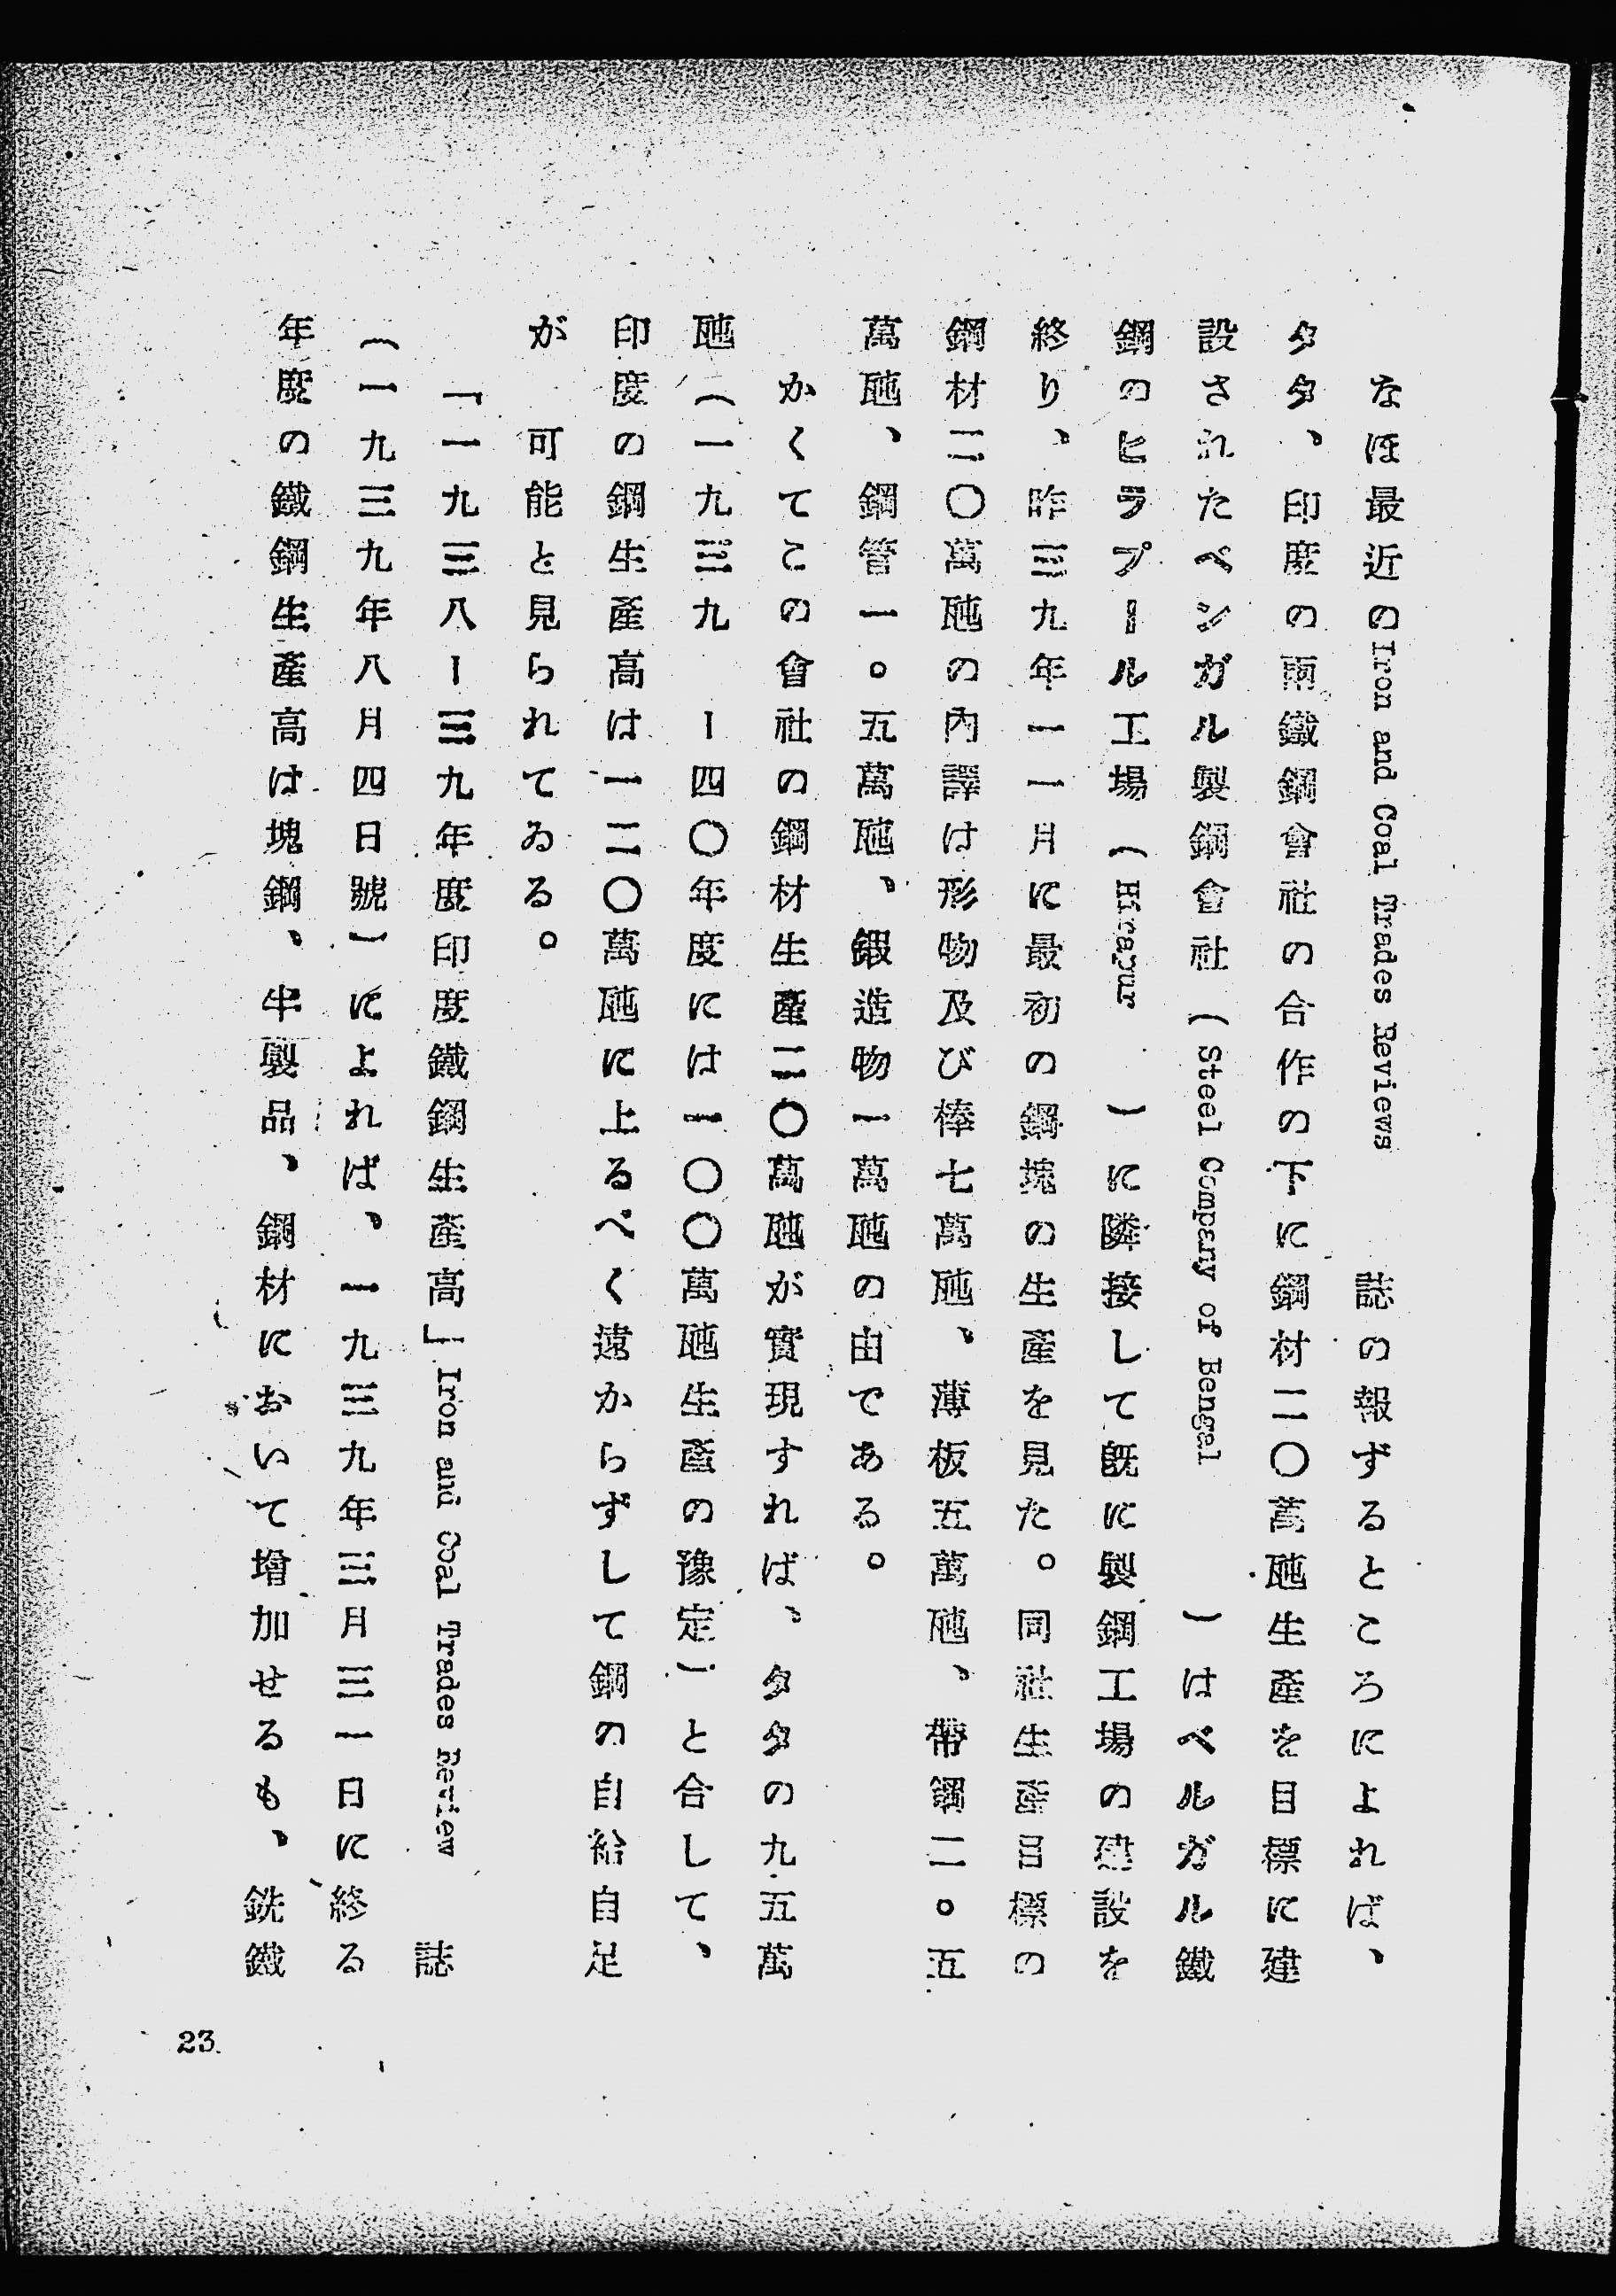 なほ最近のIron and Coal Trades Reviews 誌の報ずるところによれば、
タタ、印度の兩鐵鋼會社の合作の下に鋼材二〇萬瓲生產を目標に建
設されたベンガル製鋼會社(Steel Company of Bengal)はベルガル鐵
鋼のヒラプール工場(Hirapur)に隣接して既に製鋼工場の建設を
終り、昨三九年一一月に最初の鋼塊の生產を見た。同社生產目標の
鋼材二〇萬瓲の內譯は形物及び棒七萬瓲、薄板五萬瓲、帶鋼二。五
萬瓲、鋼管一。五萬瓲、鍛造物一萬瓲の由である。
かくてこの會社の鋼材生產二〇萬瓲が實現すれば、タタの九五萬
瓲(一九三九ー四〇年度には一〇〇萬瓲生產の豫定)と合して、
印度の鋼生產高は一二〇萬瓲に上るべく遠からずして鋼の自給自足
が可能と見られてゐる。
「一九三八ー三九年度印度鐵鋼生產高」Iron and Coal Trades Review 誌
(一九三九年八月四日號)によれば、一九三九年三月三一日に終る
年度の鐵鋼生產高は塊鋼、半製品、鋼材において增加せるも、銑鐵
23